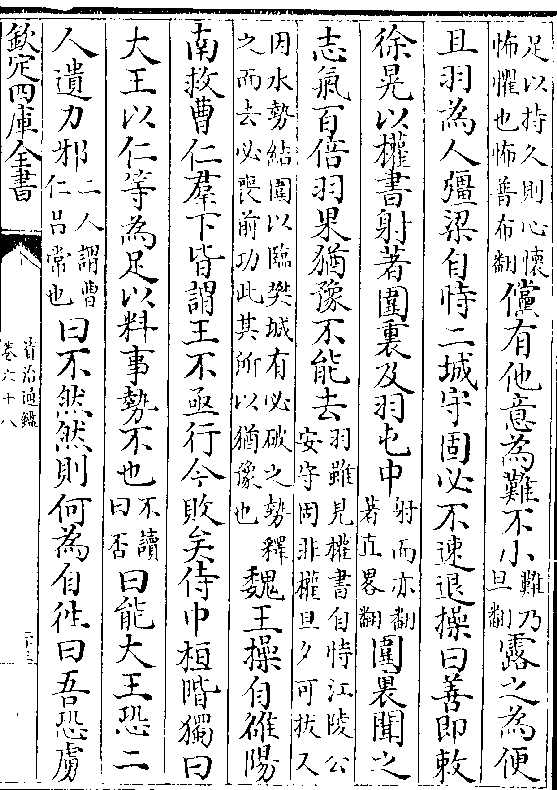 足以持久則心懷
怖懼也怖普布翻
儻有他意為難不小
難乃
旦翻
露之為便
且羽為人彊梁自恃二城守固必不速退操曰善即敕
徐晃以權書射著圍裏及羽屯中
射而亦翻
著直畧翻
圍裏聞之
志氣百倍羽果猶豫不能去
羽雖見權書自恃江陵公
安守固非權旦夕可拔又
因水勢結圍以臨樊城有必破之勢釋
之而去必喪前功此其所以猶豫也
魏王操自雒陽
南救曹仁羣下皆謂王不亟行今敗矣侍中桓階獨曰
大王以仁等為足以料事勢不也
不讀
曰否
曰能大王恐二
人遺力邪
二人謂曹
仁呂常也
曰不然然則何為自往曰吾恐虜
欽定四庫全書
資治通鑑
卷六十八